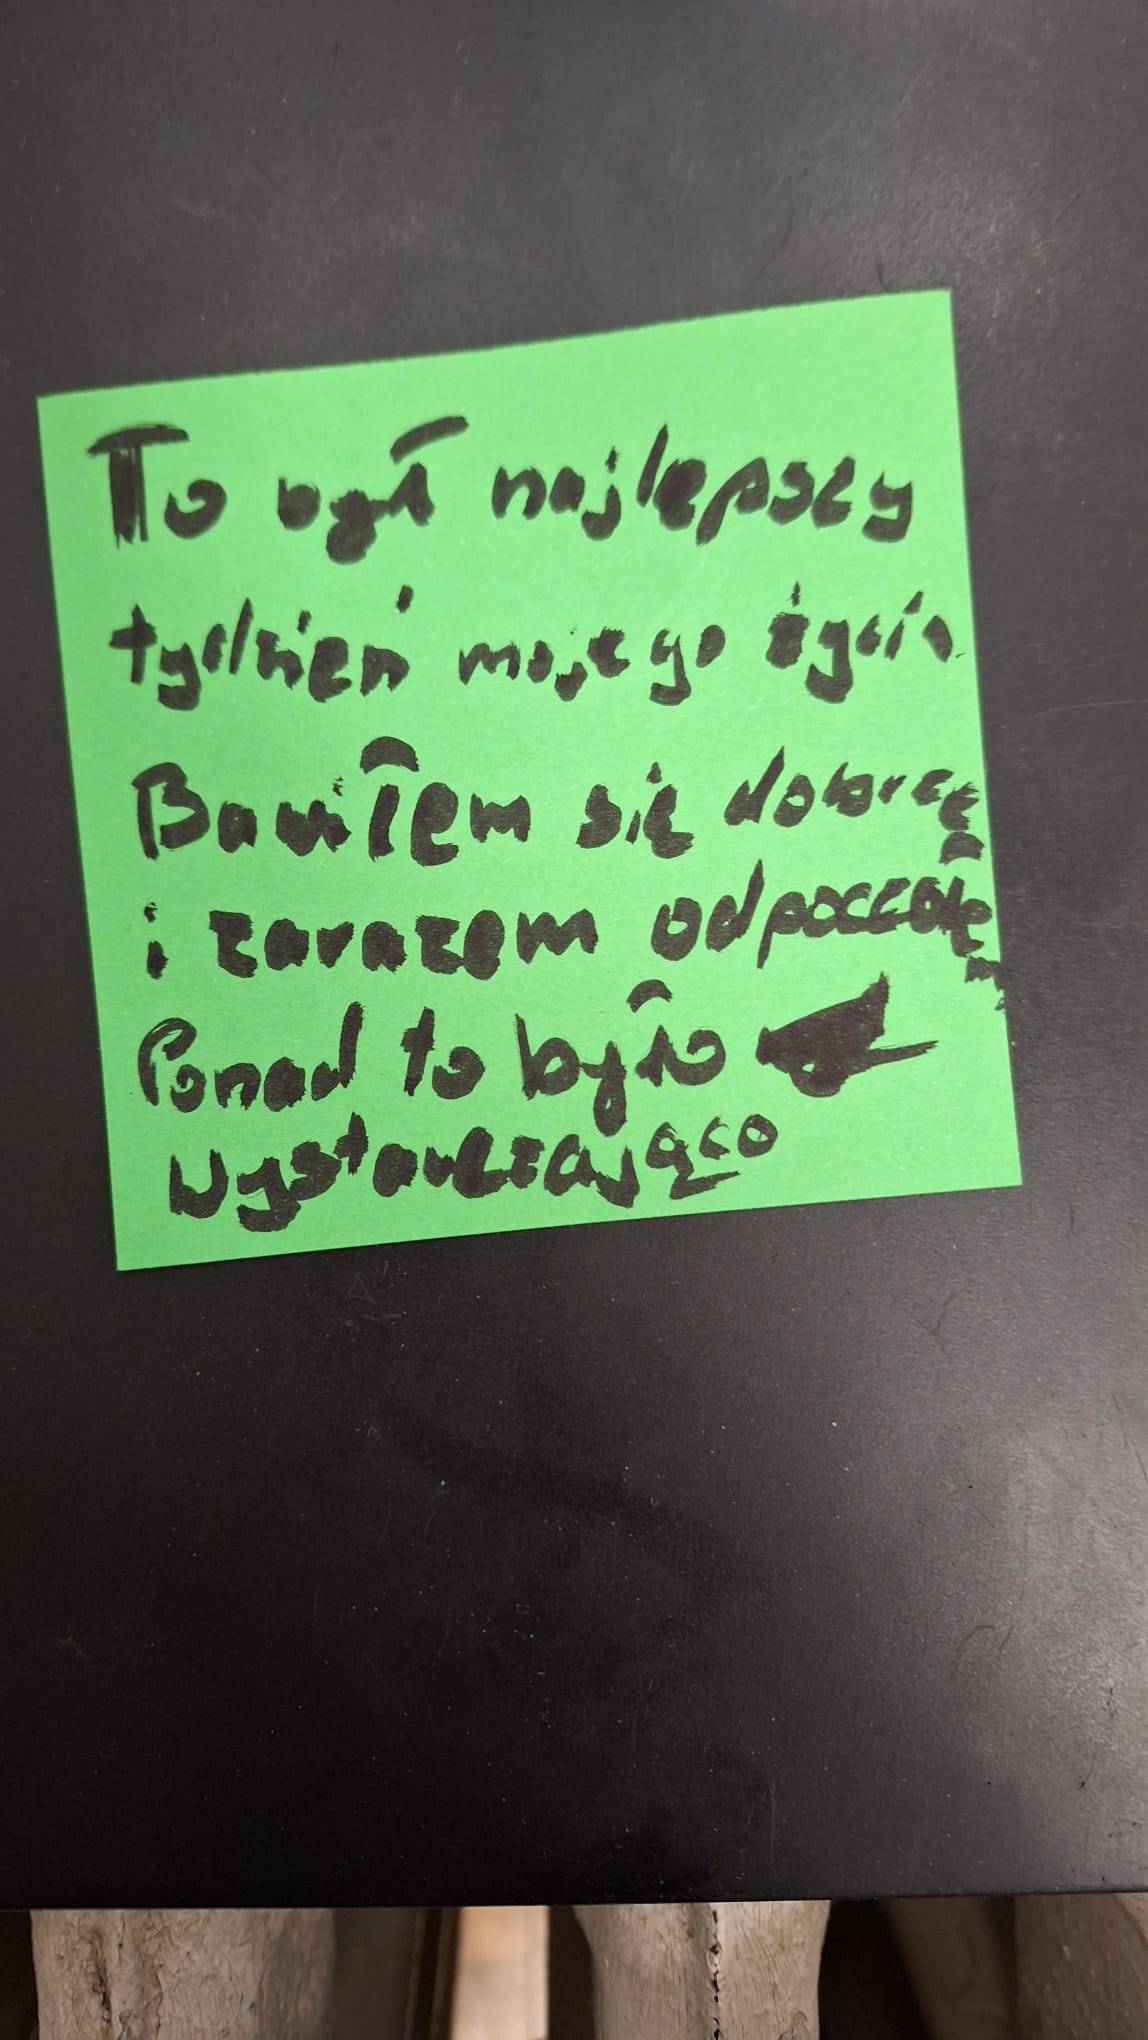 To był najlepszy
tydzień mojego życia
Bawiłem się dobrze
i zarazem odpocząłem
Ponad to było
wystarczająco